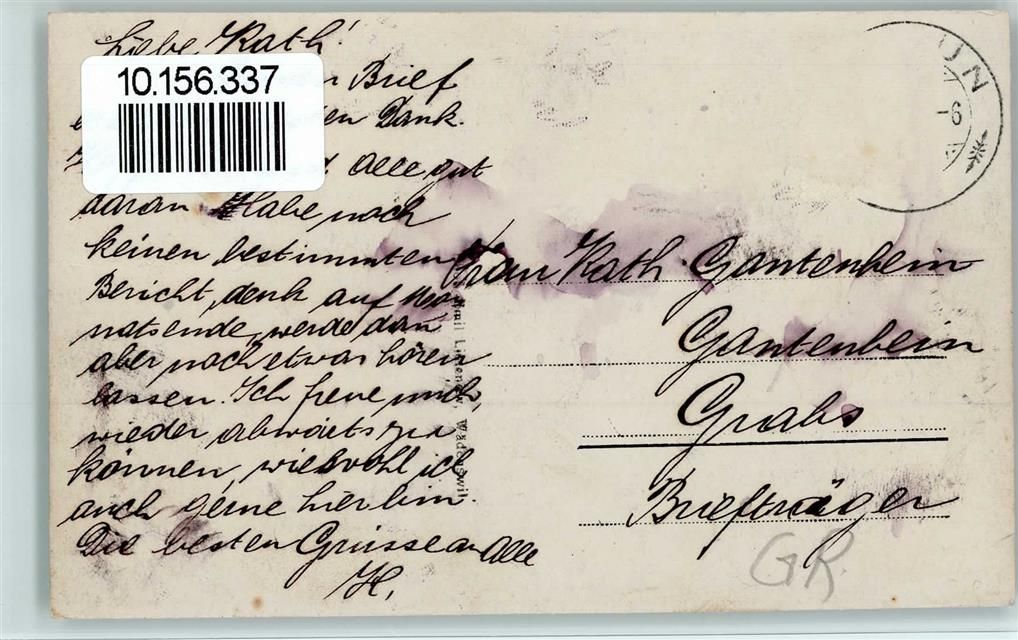 Liebe Kath!
10.156.337
Brief
en Dank.
Alle gut
daran. Habe noch
keinen bestimmten
Bericht, denk auf Mo
natsende, werde dan
aber noch etwas hören
lassen. Ich freue mich,
wieder abwärts zu
können, wiewohl ich
auch gerne hier bin.
Die besten Grüsse an Alle
H.
Frau Kath. Gantenbein
Gantenbein
Grabs
Briefträger
GR.
UN
-6
Wädenswil